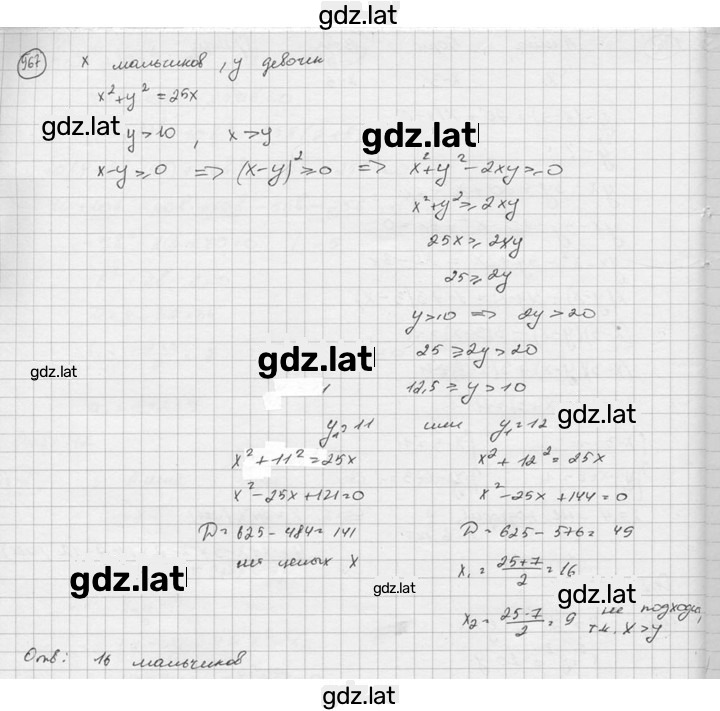 gdz.lat
967 x мальчиков, y девочек
x²+y²=25x
gdz.lat y>10, x>y gdz.lat
x-y⩾0 => (x-y)²⩾0 => x²+y²-2xy⩾0
x²+y²⩾2xy
25x⩾2xy
25⩾2y
y>10 => 2y>20
gdz.lat 25⩾2y>20
gdz.lat
12,5⩾y>10
y₁=11 или y₁=12 gdz.lat
x²+11²=25x x²+12²=25x
x²-25x+121=0 x²-25x+144=0
D=625-484=141 D=625-576=49
нет целых x x₁=(25+7)/2=16
gdz.lat gdz.lat gdz.lat
x₂=(25-7)/2=9 не подходит,
т.к. x>y
Отв: 16 мальчиков
gdz.lat